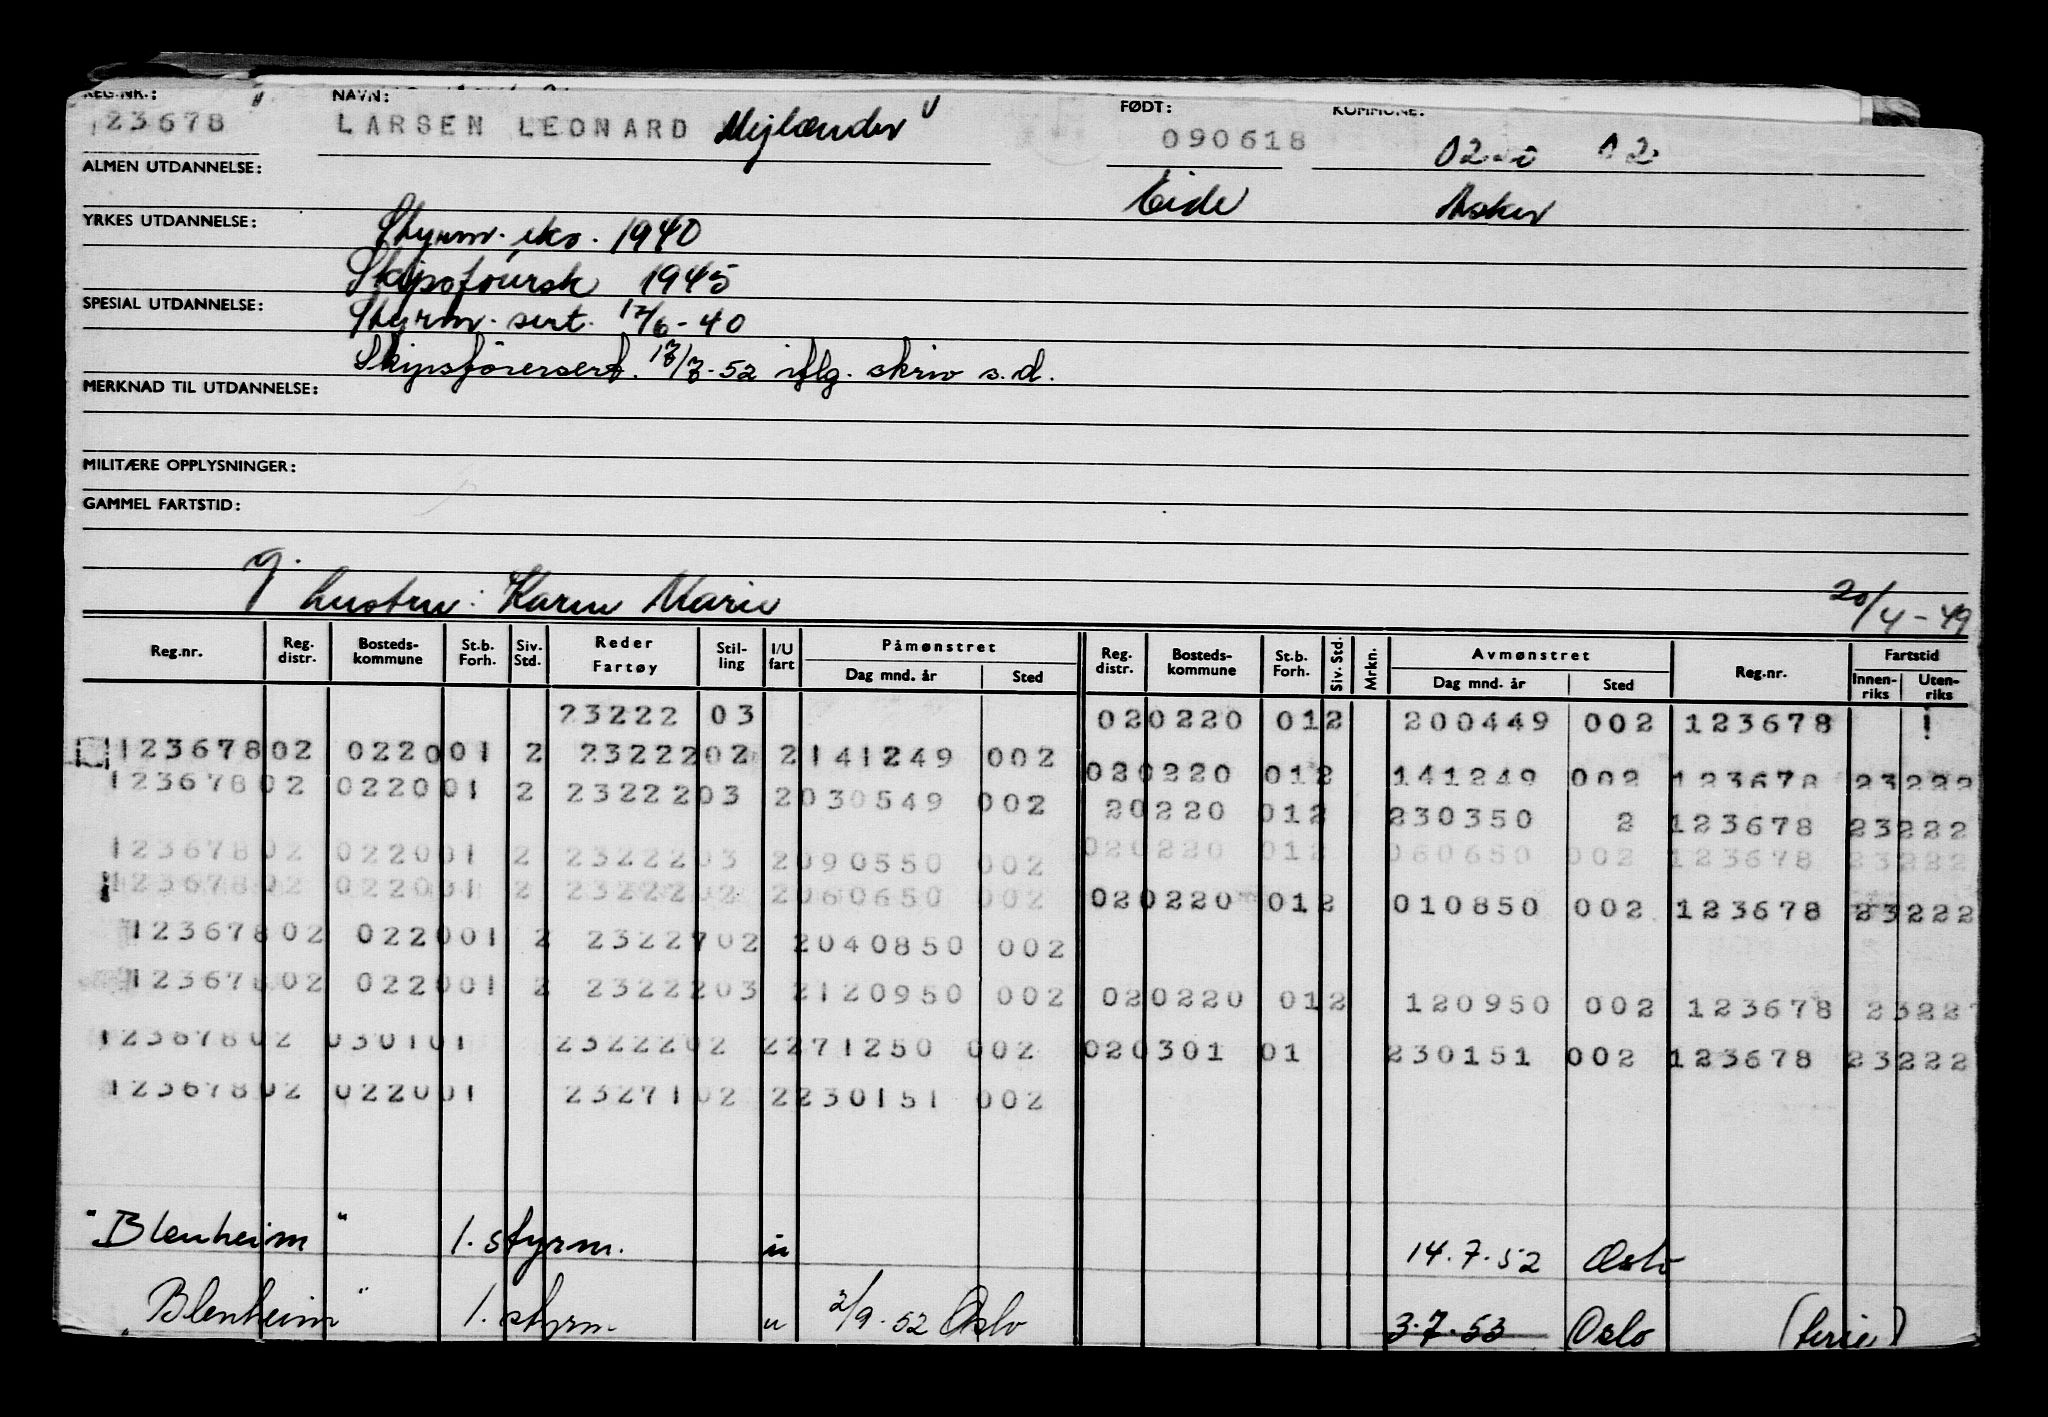 REG.NR.: NAVN: FØDT: KOMMUNE:
123678 LARSEN LEONARD Mejlænder 090618 02
ALMEN UTDANNELSE:
Eide Asker
YRKES UTDANNELSE: Styrm. eks. 1940
Skipsförersk 1945
SPESIAL UTDANNELSE: Styrm. sert. 17/6-40
Skipsförersert. 17/7-52 iflg. skriv s.d.
MERKNAD TIL UTDANNELSE:
MILITÆRE OPPLYSNINGER:
GAMMEL FARTSTID:
g.
hustru: Karen Marie 20/4-49
Reg.nr. Reg. distr. Bosteds-kommune St.b. Forh. Siv. Std. Reder Fartøy Stil-ling I/U fart Påmønstret Dag mnd. år Sted Reg. distr. Bosteds-kommune St.b. Forh. Siv. Std. Mrkn. Avmønstret Dag mnd. år Sted Reg.nr. Fartstid Innen-riks Uten-riks
23222 03 020220 012 200449 002 123678
12367802 022001 2 2322202 2141249 002
020220 012 141249 002 123678 23222
12367802 022001 2 2322203 2030549 002
20220 012 230350 2 123678 23222
12367802 022001 2 2322203 2090550 002 020220 012 060650 002 123678 23222
12367802 022001 2 2322202 2060650 002 020220 012 010850 002 123678 23222
12367802 022001 2 2322702 2040850 002
12367802 022001 2 2322203 2120950 002 020220 012 120950 002 123678 2322
12367802 030101 2322202 2271250 002 020301 01 230151 002 123678 23222
12367802 022001 2327102 2230151 002
"Blenheim" 1. styrm. u 14.7.52 Oslo
"Blenheim" 1. styrm. u 2/9.52 Oslo 3.7.53 Oslo (ferie)